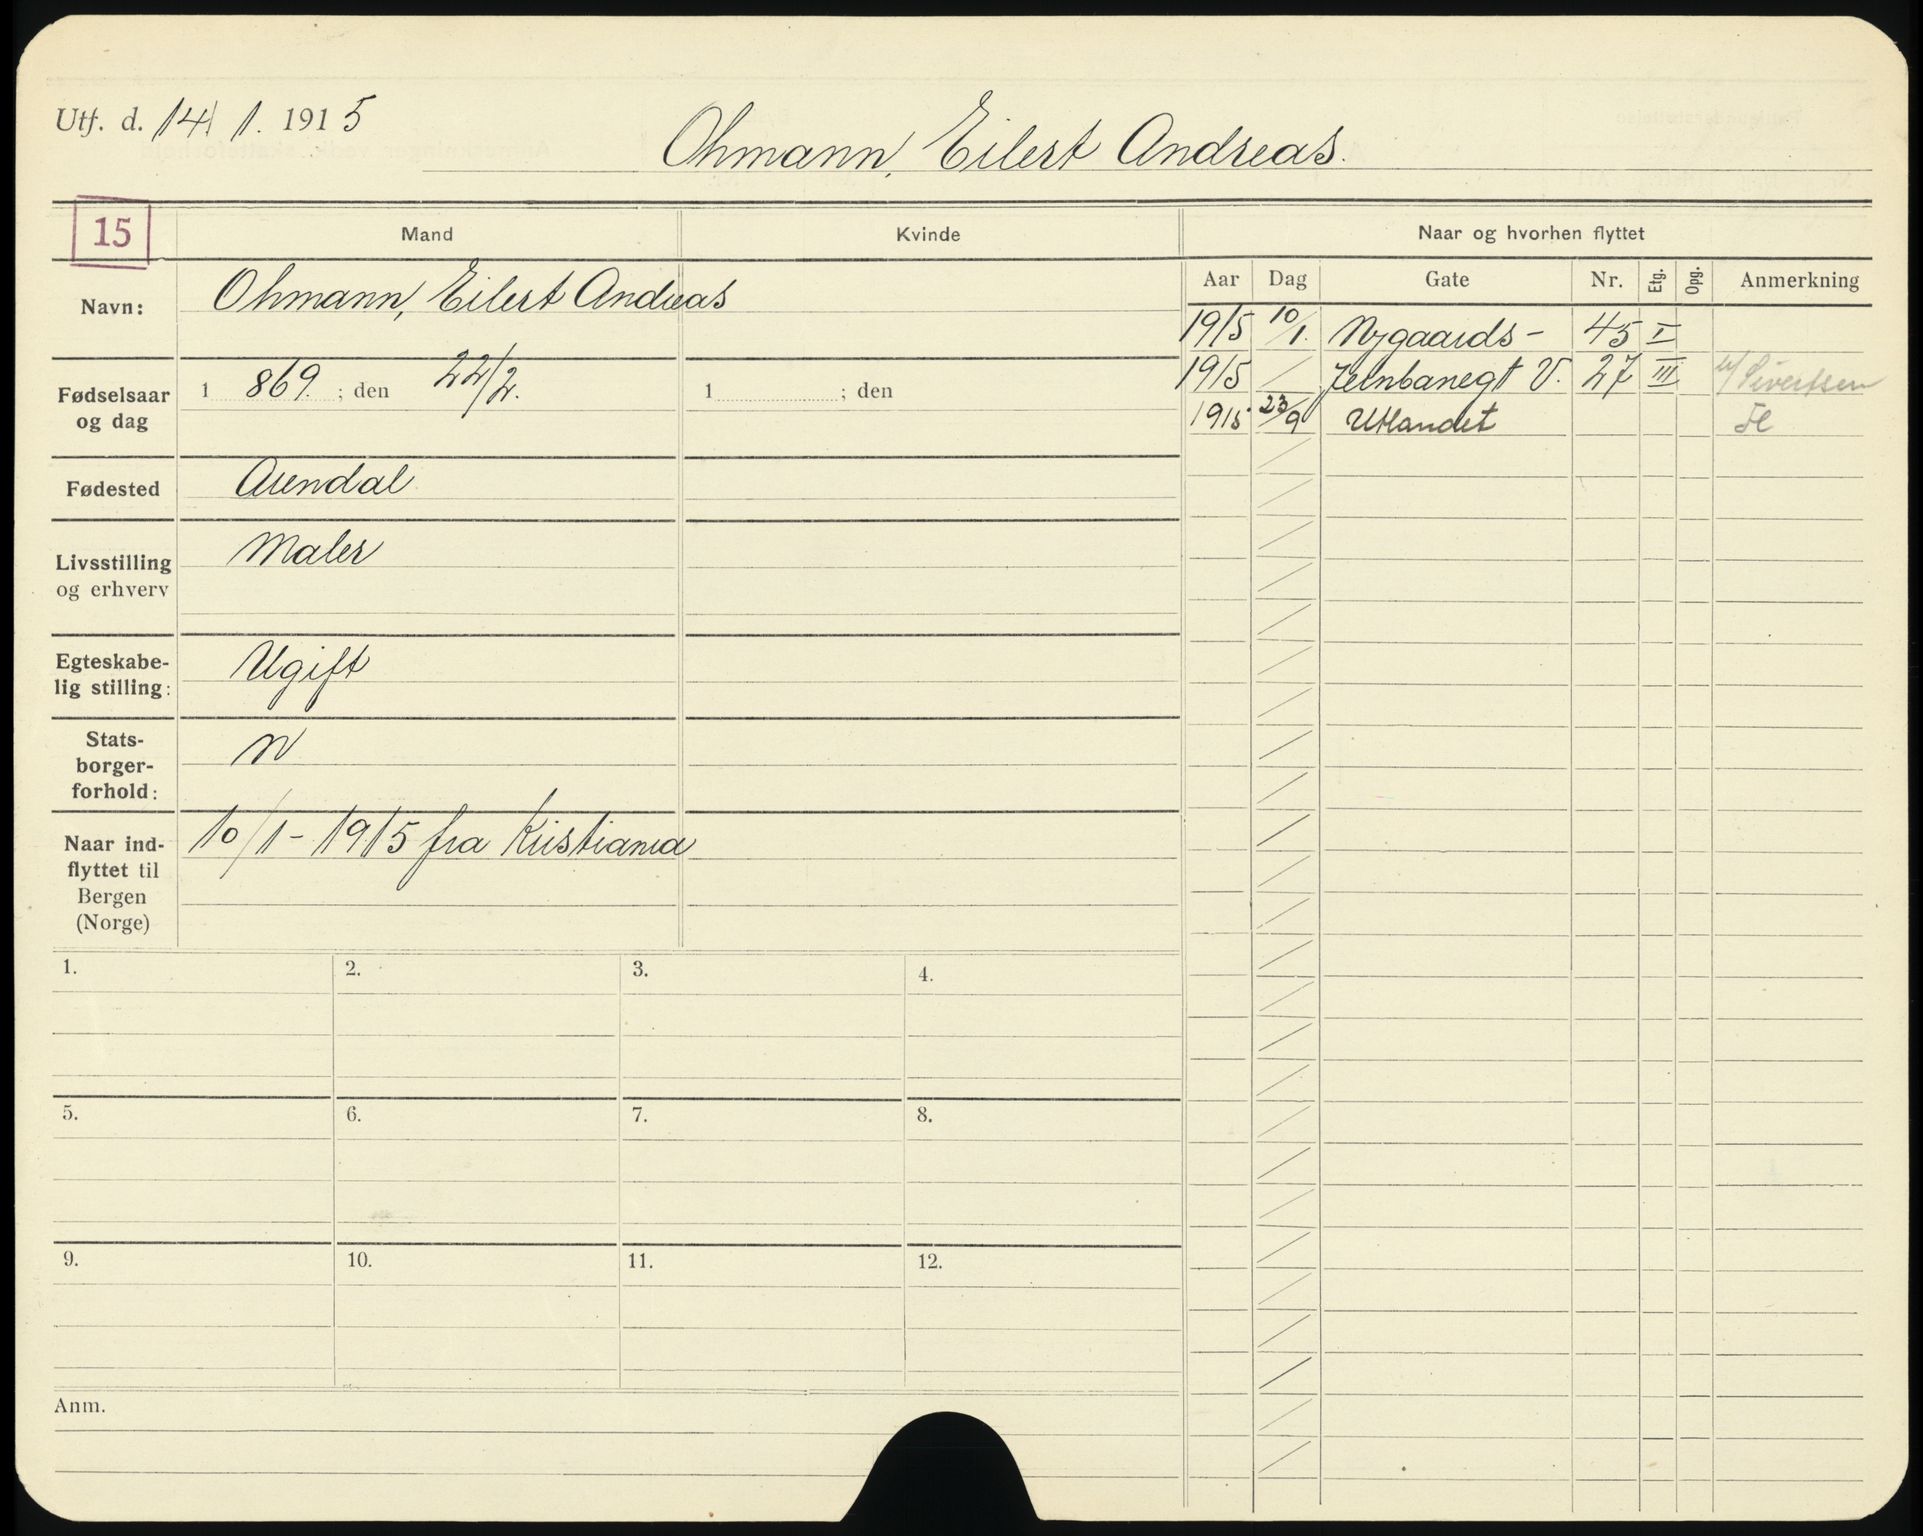 Utf. d. 14/1. 1915
Ohmann, Eilert Andreas.
15
Mand
Kvinde
Naar og hvorhen flyttet
Navn:
Ohmann, Eilert Andreas
Aar Dag Gate Nr. Etg. Opg. Anmerkning
1915 10/1. Nygaards- 45 I
1915 Jernbanegt V. 27 III Sivertsen
1915 23/9 Utlandet
Fødselsaar
og dag
1 869. ; den 22/2.
1 ; den
Fødested
Arendal
Livsstilling
og erhverv
Maler
Egteskabe-
lig stilling:
Ugift
Stats-
borger-
forhold:
N
Naar ind-
flyttet til
Bergen
(Norge)
10/1 - 1915 fra Kristiania
1. 2. 3. 4.
5. 6. 7. 8.
9. 10. 11. 12.
Anm.